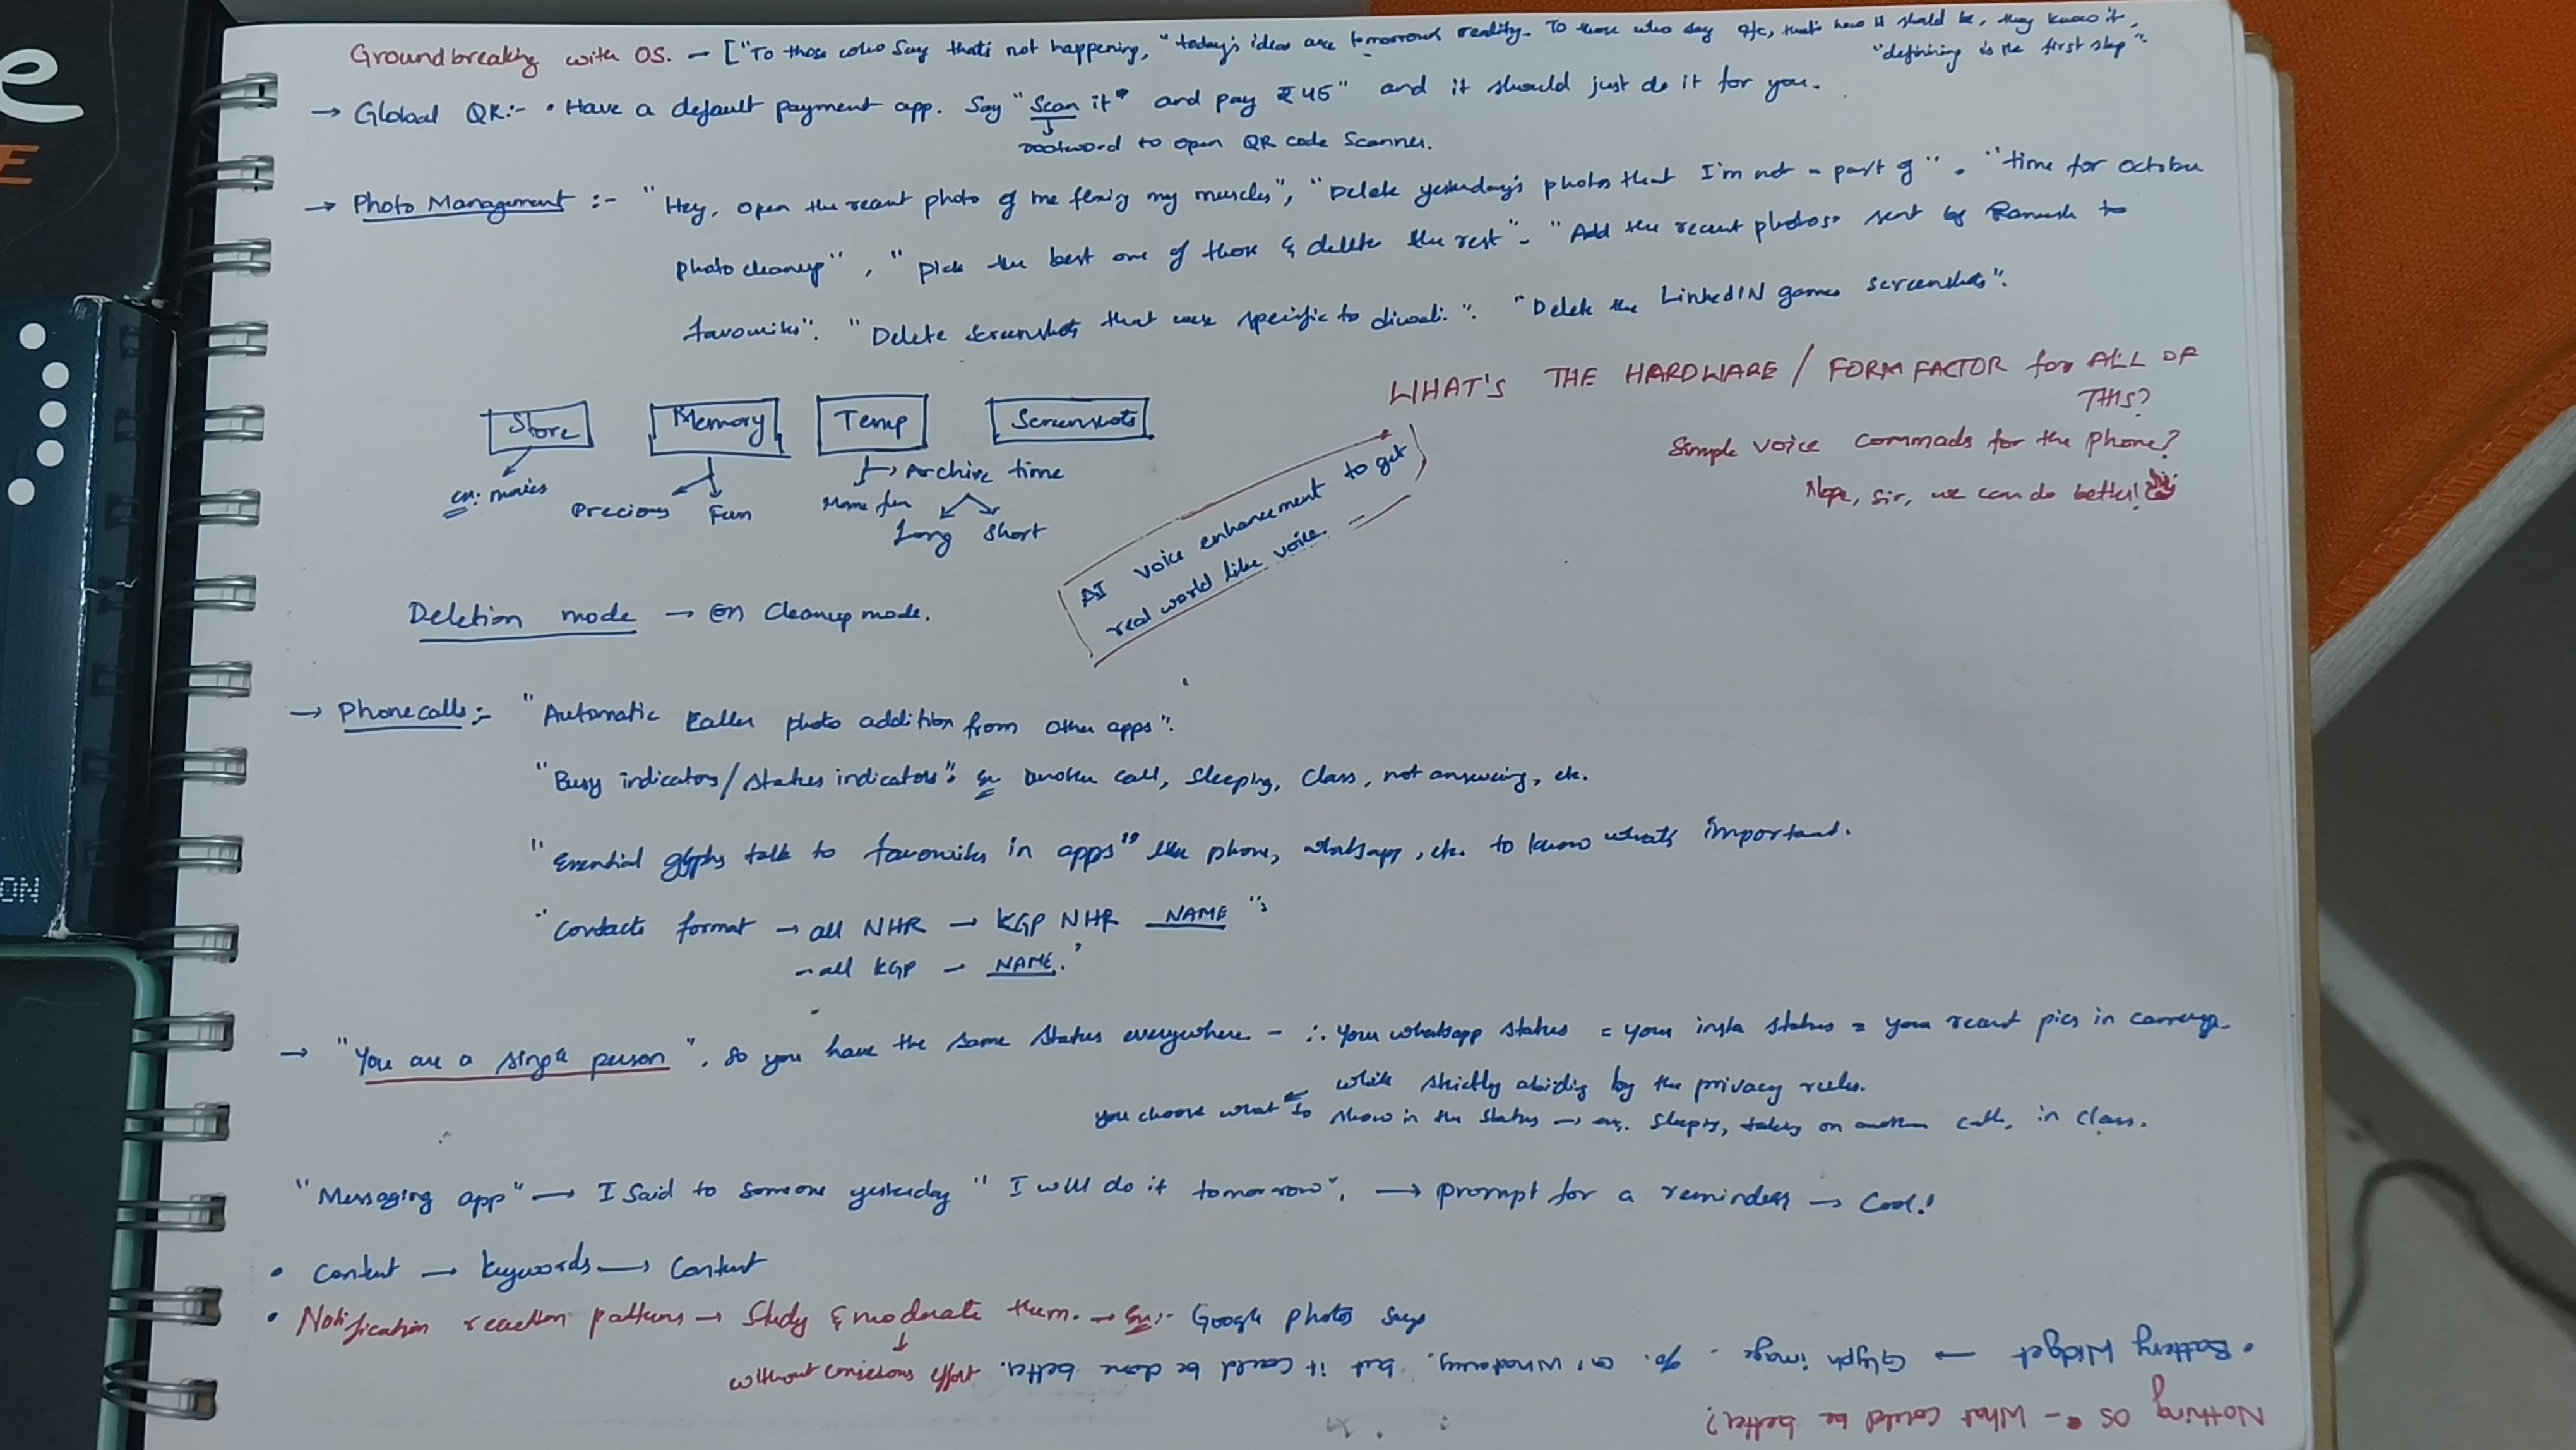 Groundbreaking with OS. - ["To those who say that's not happening, "today's ideas are tomorrows reality. To those who say o/c, that's how it should be, they know it,
"defining is the first step".
→ Global QR:- • Have a default payment app. Say "Scan it" and pay ₹45" and it should just do it for you.
rootword to open QR code Scanner.
→ Photo Management :- "Hey, open the recent photo of me flexing my muscles", "Delete yesterday's photos that I'm not a part of". "time for october
photo cleanup", "pick the best one of those & delete the rest". "Add the recent photos sent by to
favourites". "Delete screenshots that were specific to diwali.". "Delete the LinkedIN games screenshots".
WHAT'S THE HARDWARE / FORM FACTOR for ALL OF
THIS?
Simple voice commads for the phone?
Nope, sir, we can do better!
Store Memory Temp Screenshots
ex: movies
Precious Fun
Archive time
Long Short
AI voice enhancement to get
real world like voice.
Deletion mode → Cleanup mode.
→ Phonecalls:- "Automatic Caller photo addition from other apps".
"Busy indicators/status indicators". Ex another call, sleeping, class, not answering, etc.
"Essential glyphs talk to favourites in apps" like phone, whatsapp, etc. to know what's important.
"Contacts format → all NHR → KGP NHR NAME"
→ all KGP → NAME.
→ "You are a single person", so you have the same status everywhere - ∴ Your whatsapp status = your insta status = your recent pics in
while strictly abiding by the privacy rules.
you choose what to show in the status → ex. sleeping, talking on another call, in class.
"Messaging app" → I said to someone yesterday "I will do it tomorrow". → prompt for a reminder → Cool!
• Content → keywords → Content
• Notification reaction patterns → Study & moderate them. → Ex:- Google photos says
without conscious effort
Nothing OS - What could be better?
• Battery Widget → Glyph image - %. but it could be done better.
e
E
ON